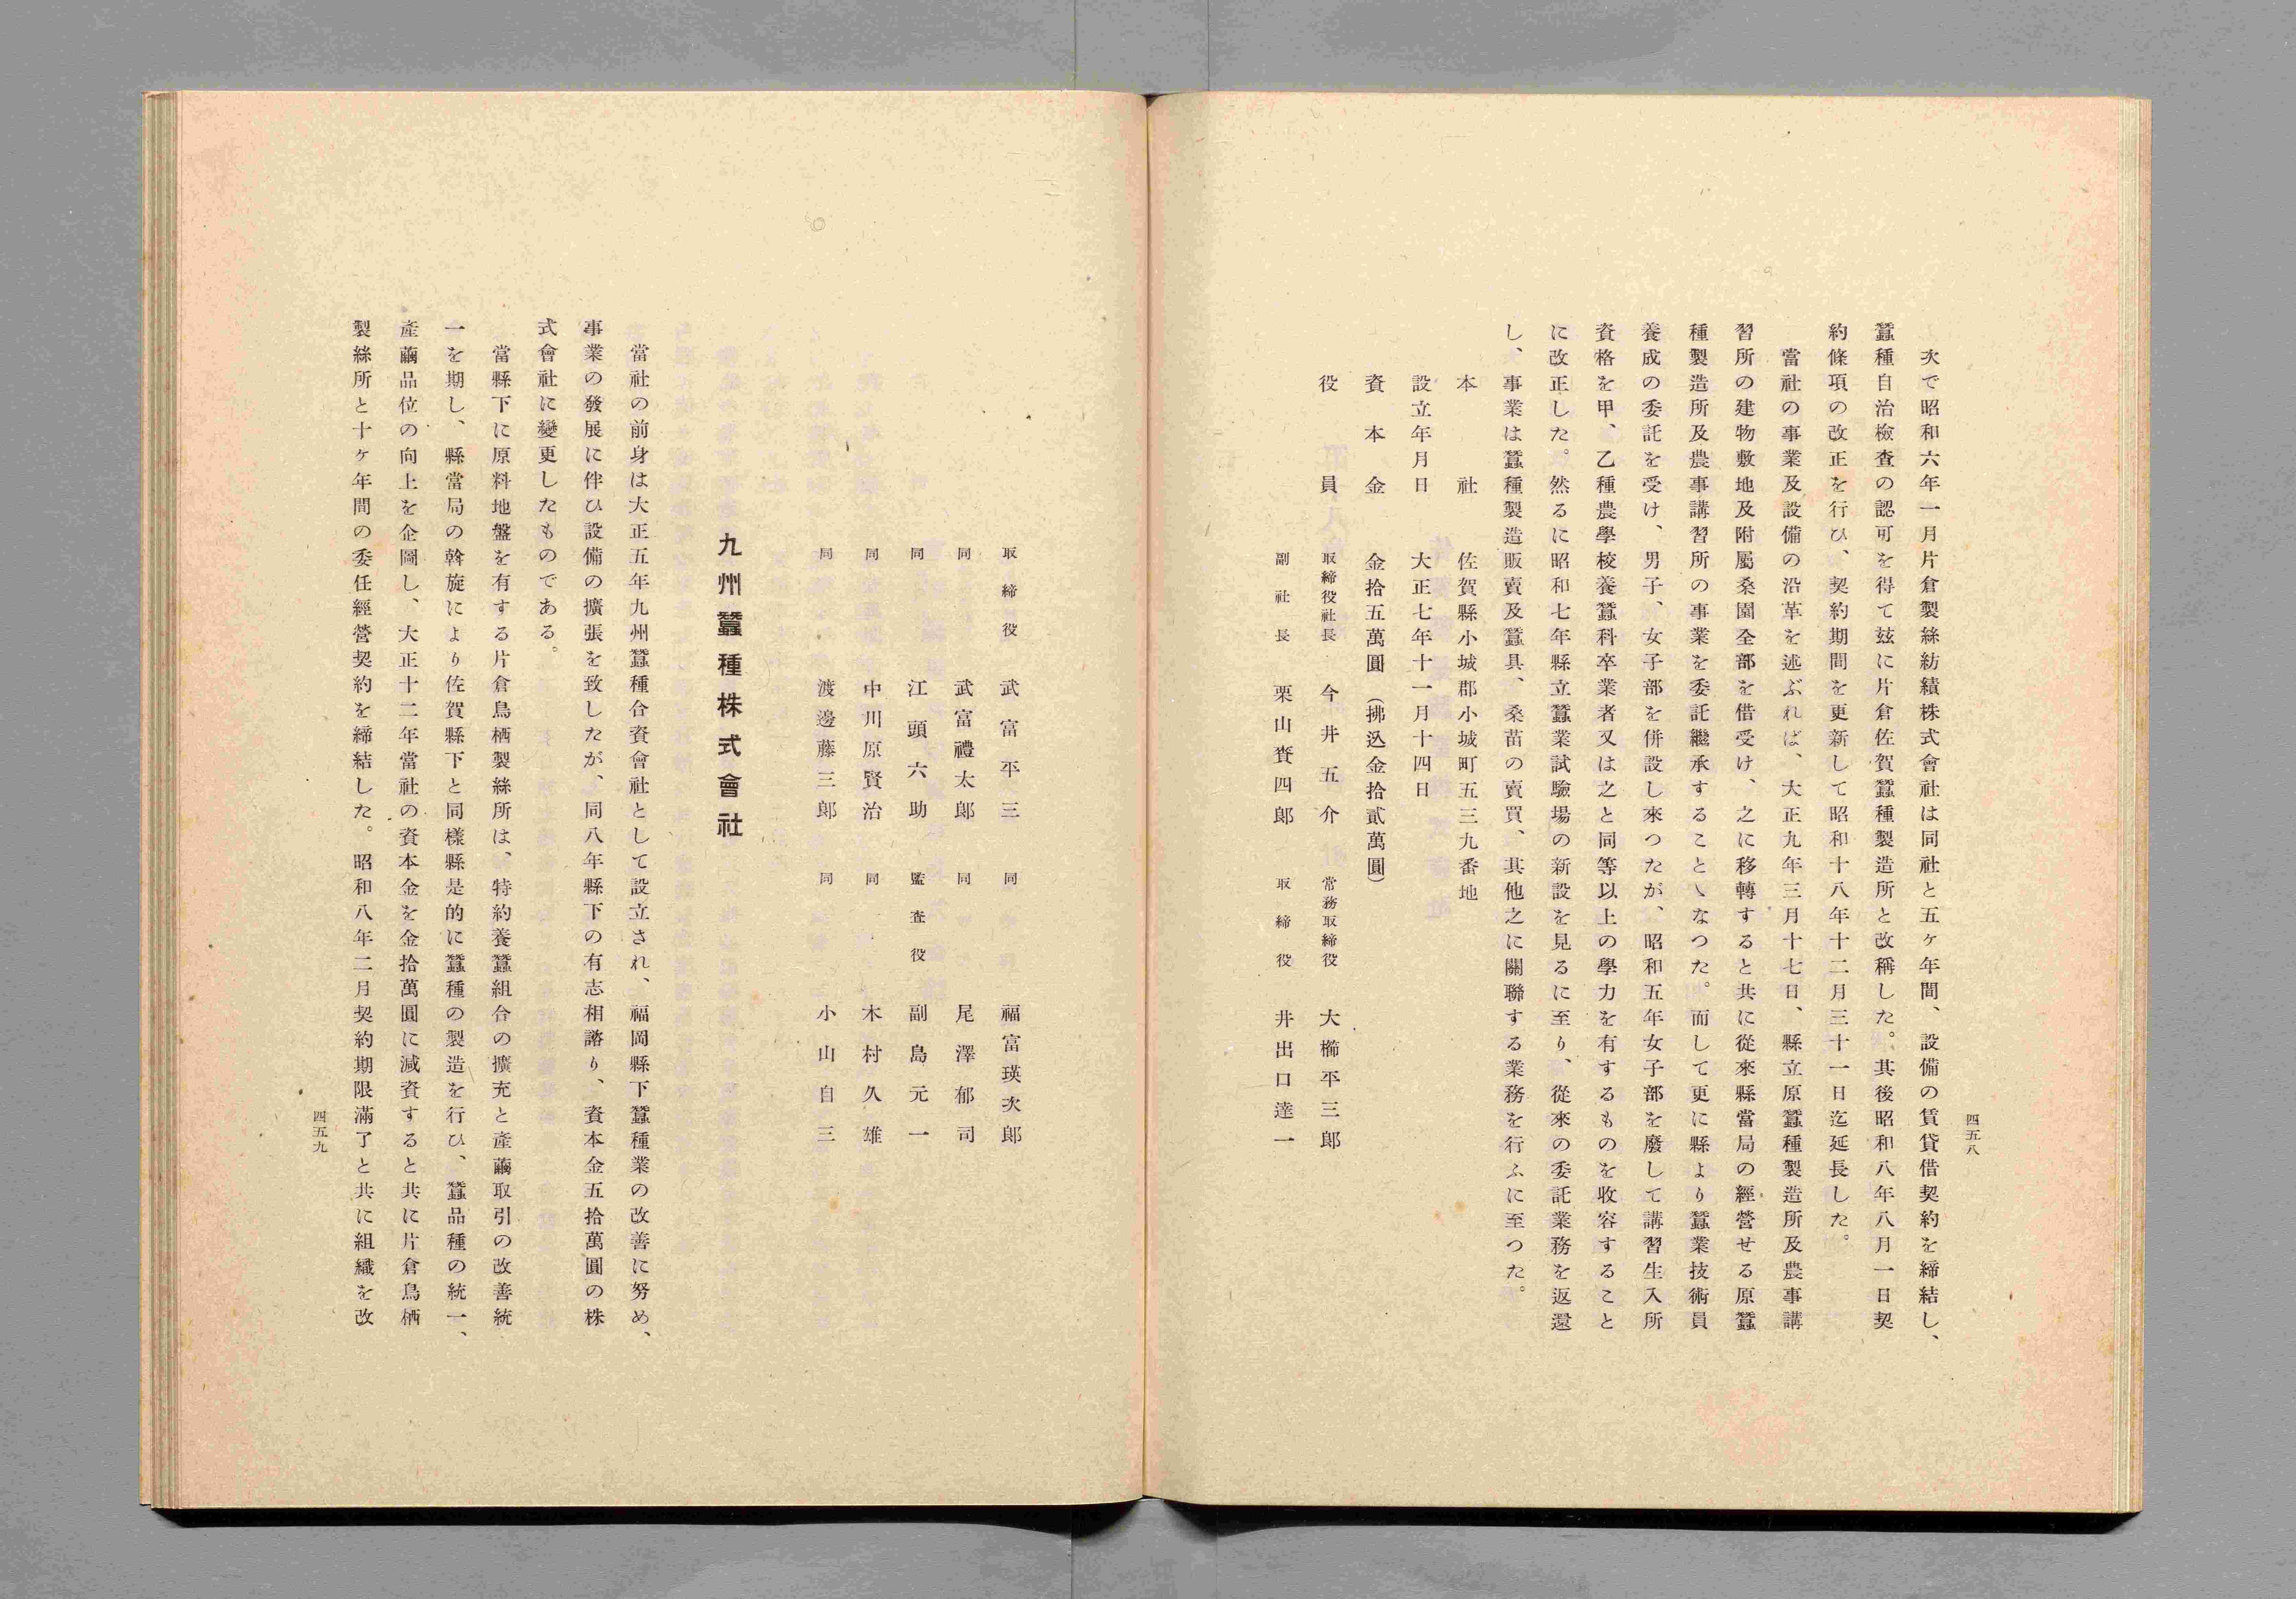 四五八
次で昭和六年一月片倉製絲紡績株式會社は同社と五ヶ年間、設備の賃貸借契約を締結し、
蠶種自治檢査の認可を得て玆に片倉佐賀蠶種製造所と改稱した。其後昭和八年八月一日契
約條項の改正を行ひ、契約期間を更新して昭和十八年十二月三十一日迄延長した。
當社の事業及設備の沿革を述ぶれば、大正九年三月十七日、縣立原蠶種製造所及農事講
習所の建物敷地及附屬桑園全部を借受け、之に移轉すると共に從來縣當局の經營せる原蠶
種製造所及農事講習所の事業を委託繼承することゝなつた。而して更に縣より蠶業技術員
養成の委託を受け、男子、女子部を併設し來つたが、昭和五年女子部を廢して講習生入所
資格を甲、乙種農學校養蠶科卒業者又は之と同等以上の學力を有するものを收容すること
に改正した。然るに昭和七年縣立蠶業試驗場の新設を見るに至り、從來の委託業務を返還
し、事業は蠶種製造販賣及蠶具、桑苗の賣買、其他之に關聯する業務を行ふに至つた。
本社 佐賀縣小城郡小城町五三九番地
設立年月日 大正七年十一月十四日
資本金 金拾五萬圓（拂込金拾貳萬圓）
役員 取締役社長 今井五介 常務取締役 大櫛平三郎
副社長 栗山賚四郎 取締役 井出口達一
取締役 武富平三 同 福富瑛次郎
同 武富禮太郎 同 尾澤郁司
同 江頭六助 監査役 副島元一
同 中川原賢治 同 木村久雄
同 渡邊藤三郎 同 小山自三
九州蠶種株式會社
當社の前身は大正五年九州蠶種合資會社として設立され、福岡縣下蠶種業の改善に努め、
事業の發展に伴ひ設備の擴張を致したが、同八年縣下の有志相諮り、資本金五拾萬圓の株
式會社に變更したものである。
當縣下に原料地盤を有する片倉鳥栖製絲所は、特約養蠶組合の擴充と產繭取引の改善統
一を期し、縣當局の斡旋により佐賀縣下と同樣縣是的に蠶種の製造を行ひ、蠶品種の統一、
產繭品位の向上を企圖し、大正十二年當社の資本金を金拾萬圓に減資すると共に片倉鳥栖
製絲所と十ヶ年間の委任經營契約を締結した。昭和八年二月契約期限滿了と共に組織を改
四五九